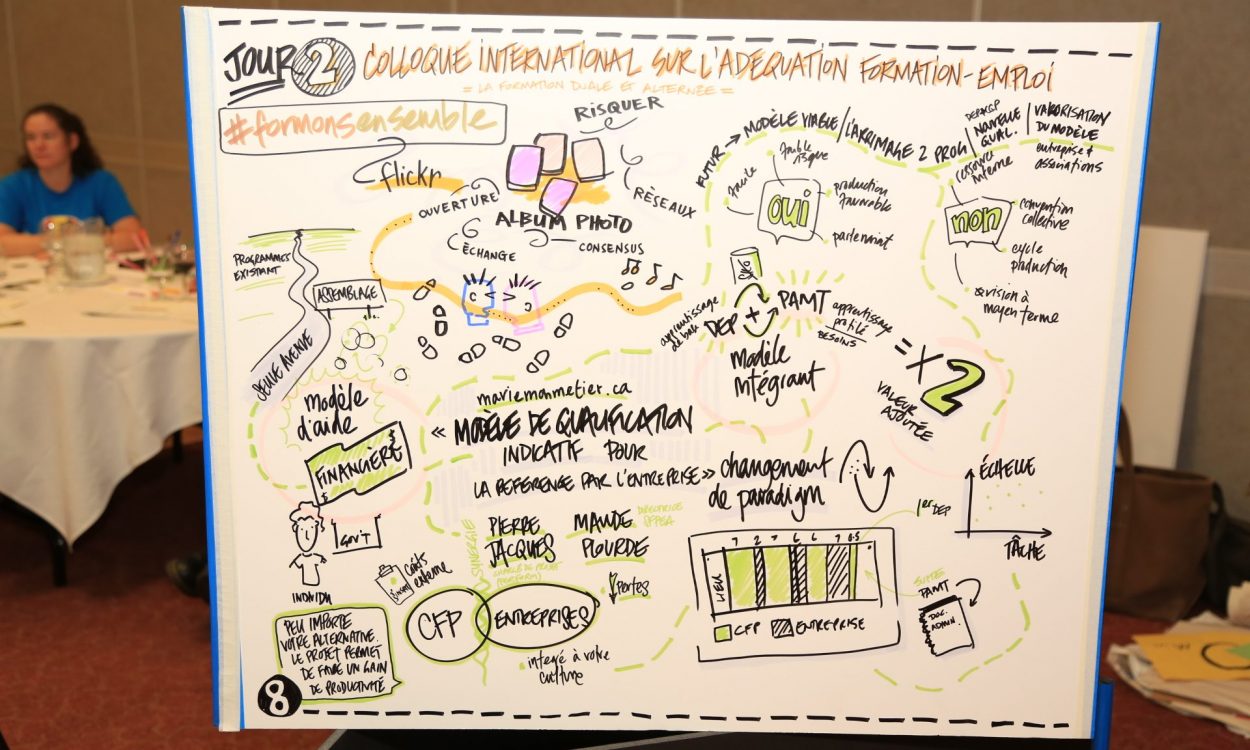 JOUR 2
COLLOQUE INTERNATIONAL SUR L'ADEQUATION FORMATION-EMPLOI
= LA FORMATION DUALE ET ALTERNÉE =
#formonsensemble
flickr
RISQUER
OUVERTURE
RÉSEAUX
ALBUM PHOTO
ÉCHANGE
CONSENSUS
PROGRAMMES
EXISTANT
ASSEMBLAGE
SEULE AVENUE
modèle
d'aide
FINANCIÈRE
GOUV'T
INDIVIDU
PEU IMPORTE
VOTRE ALTERNATIVE.
LE PROJET PERMET
DE FAIRE UN GAIN
DE PRODUCTIVITÉ
8
FUTUR → MODÈLE VIABLE / L'ARRIMAGE 2 PROG
NOUVELLE
QUAL.
VALORISATION
DU MODÈLE
entreprise &
associations
facile
faible
risque
oui
production
favorable
partenariat
ressource
interne
non
convention
collective
cycle
production
révision à
moyen terme
apprentissage
de base
DEP + PAMT
apprentissage
profilé
BESOINS
modèle
intégrant
= X 2
VALEUR
AJOUTÉE
maviemonmetier.ca
« MODÈLE DE QUALIFICATION
INDICATIF POUR
LA RÉFÉRENCE PAR L'ENTREPRISE »
changement
de paradigm
PIERRE
JACQUES
MAUDE
PLOURDE
SYNERGIE
coûts
externe
CFP
ENTREPRISES
Pertes
intégré à votre
culture
7 2 7 6 6 7 0.5
LIEU
CFP
ENTREPRISE
1er DEP
ÉCHELLE
TÂCHE
SUITES
PAMT
DOC.
ADMIN.